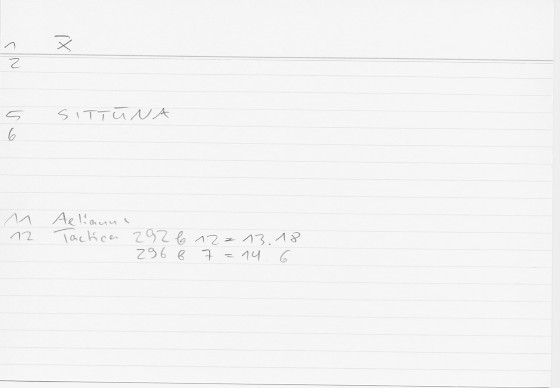 1 X̅
2
5 SITTŪNA
6
11 Aelianus
12 Tactica 292 b 12 = 13.18
296 b 7 = 14 6